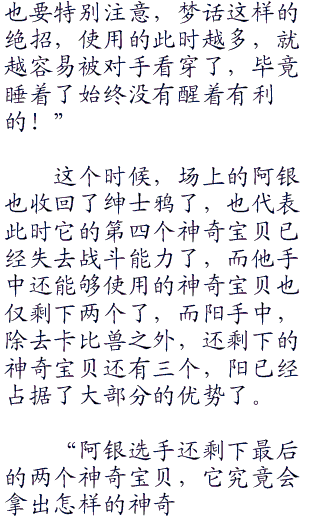 也要特别注意，梦话这样的
绝招，使用的此时越多，就
越容易被对手看穿了，毕竟
睡着了始终没有醒着有利
的！”
这个时候，场上的阿银
也收回了绅士鸦了，也代表
此时它的第四个神奇宝贝已
经失去战斗能力了，而他手
中还能够使用的神奇宝贝也
仅剩下两个了，而阳手中，
除去卡比兽之外，还剩下的
神奇宝贝还有三个，阳已经
占据了大部分的优势了。
“阿银选手还剩下最后
的两个神奇宝贝，它究竟会
拿出怎样的神奇